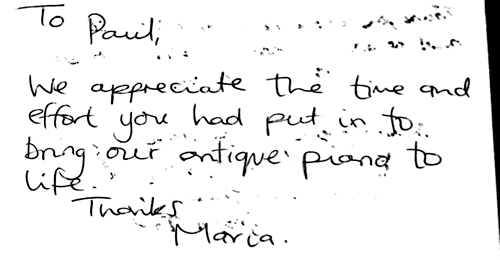 To Paul,
We appreciate the time and
effort you had put in to
bring our antique piano to
life.
Thanks
Maria.